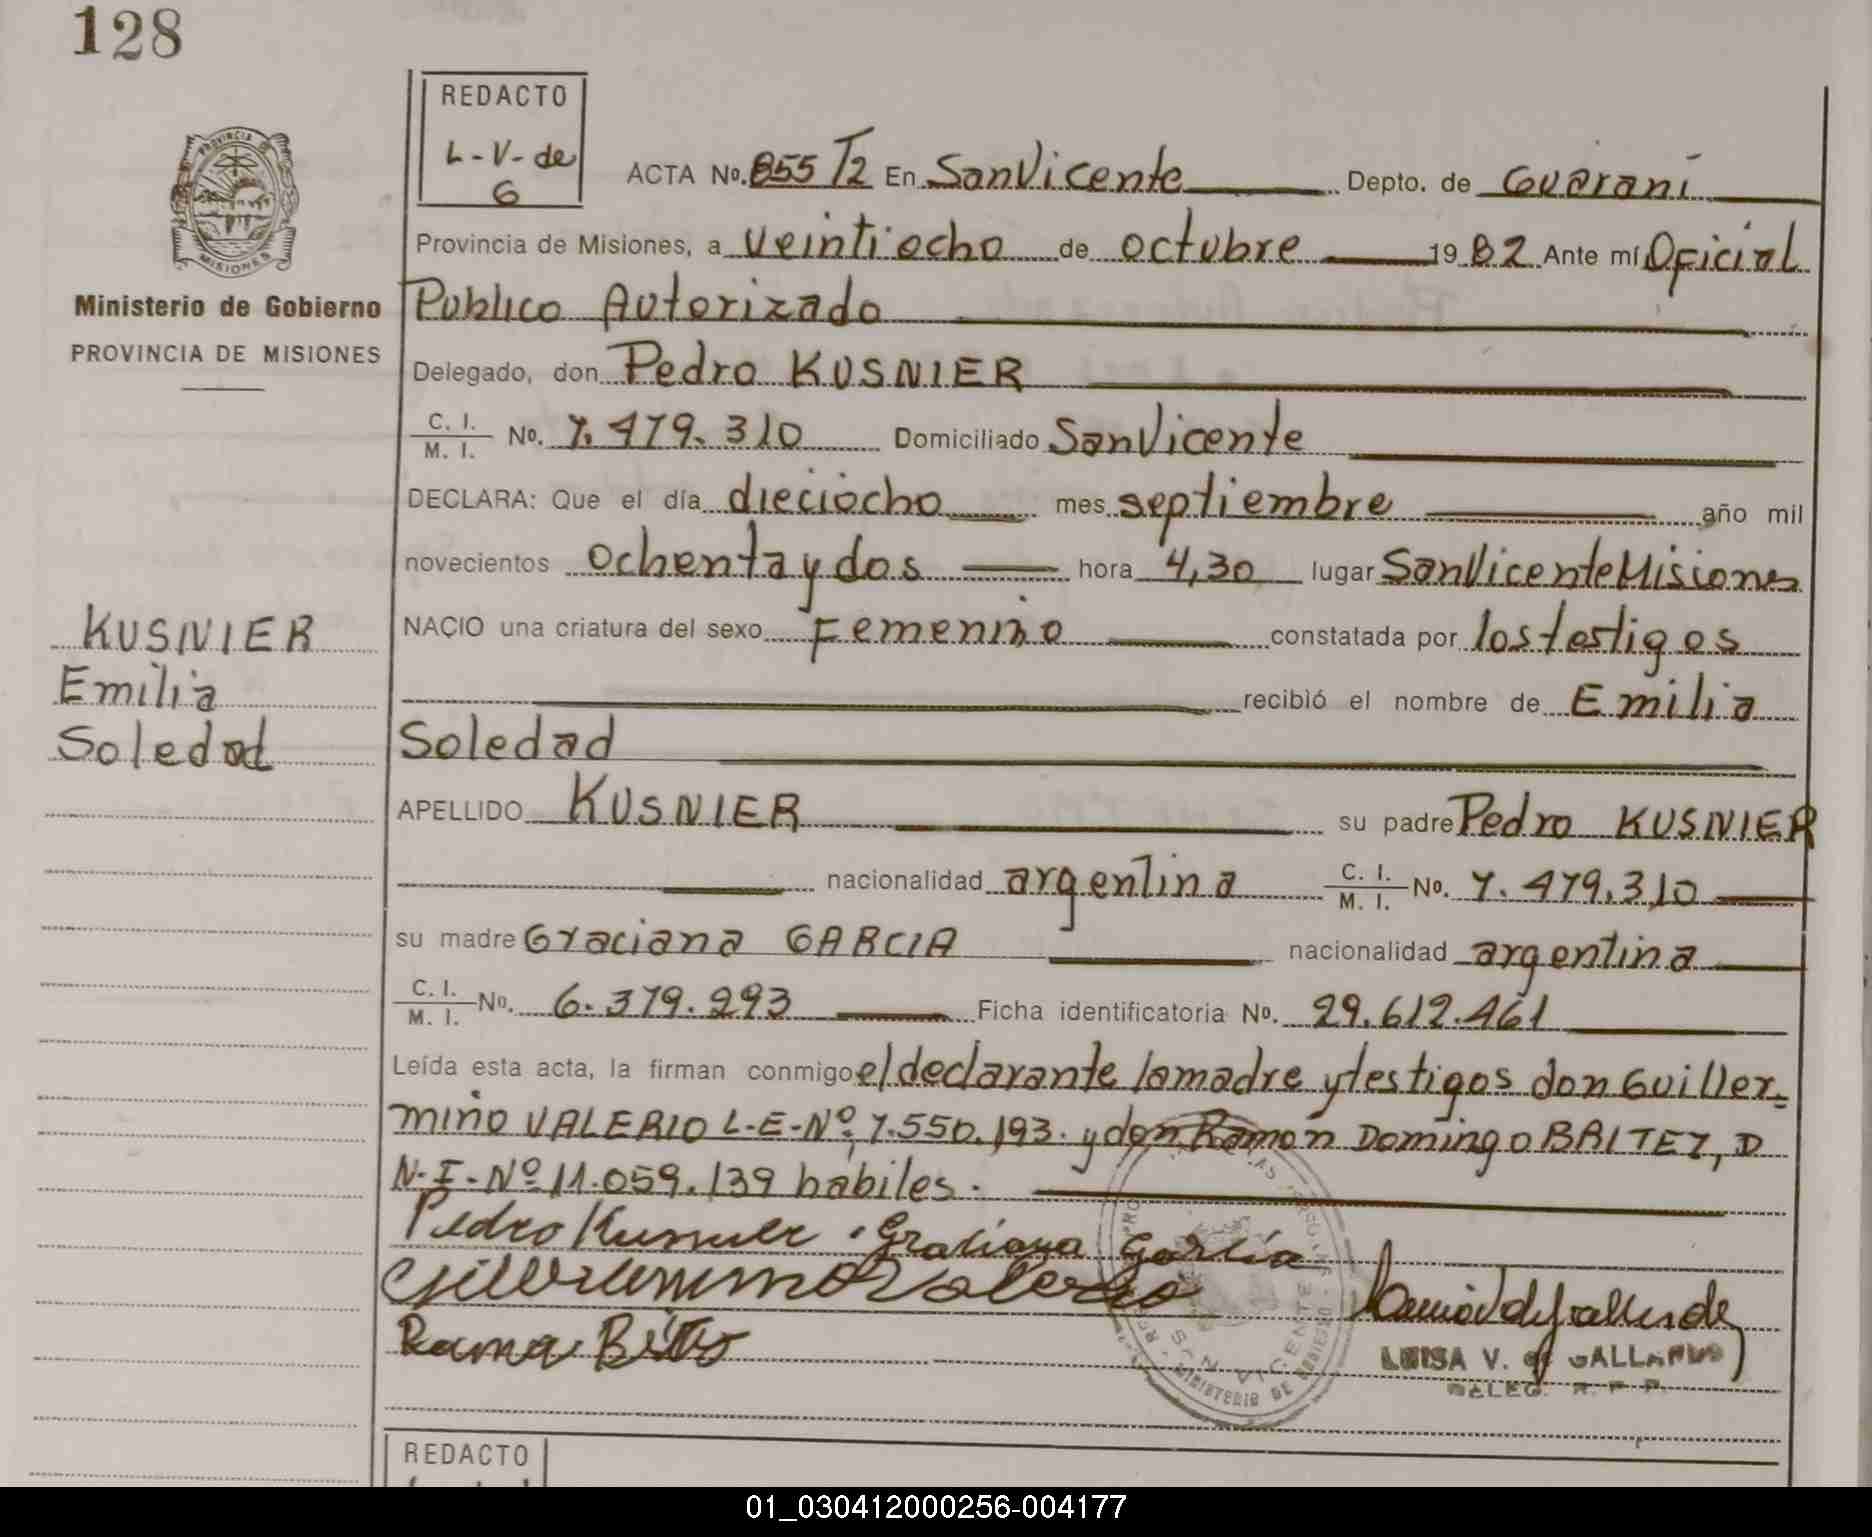 128
REDACTO
L-V-de
G
ACTA No. 855 T2 En San Vicente Depto. de Guarani
Provincia de Misiones, a veintiocho de octubre 1982 Ante mí Oficial
Publico Autorizado
Delegado, don Pedro KUSNIER
C. I.
M. I. No. 7.479.310 Domiciliado San Vicente
DECLARA: Que el día dieciocho mes septiembre año mil
novecientos ochenta y dos hora 4,30 lugar San Vicente Misiones
NACIO una criatura del sexo Femenino constatada por los testigos
recibió el nombre de Emilia
Soledad
APELLIDO KUSNIER su padre Pedro KUSNIER
nacionalidad argentina C. I.
M. I. No. 7.479.310
su madre Graciana GARCIA nacionalidad argentina
C. I.
M. I. No. 6.379.293 Ficha identificatoria No. 29.612.461
Leída esta acta, la firman conmigo el declarante la madre y testigos don Guiller-
mino VALERIO L-E-Nº 7.550.193. y don Ramon Domingo BAITEZ, D
N-I-Nº 11.059.139 habiles.
Pedro Kusnier Graciana Garcia
Guillermino Valerio
LUISA V. de GALLARDO
DELEG. R. P. P.
SAN VICENTE
MINISTERIO DE GOBIERNO
PROVINCIA
MISIONES
Ministerio de Gobierno
PROVINCIA DE MISIONES
KUSNIER
Emilia
Soledad
REDACTO
01_030412000256-004177